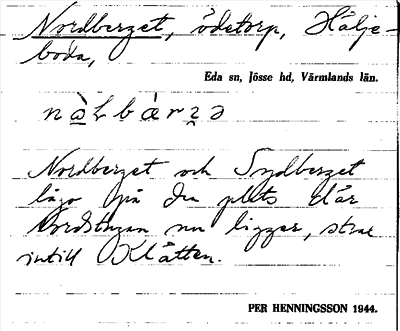 Nordberget, ödetorp, Hälje-
boda,
Eda sn, Jösse hd, Värmlands län.
Nordberget och Sydberget
lågo på den plats där
nu ligger, strax
intill Klätten.
PER HENNINGSSON 1944.